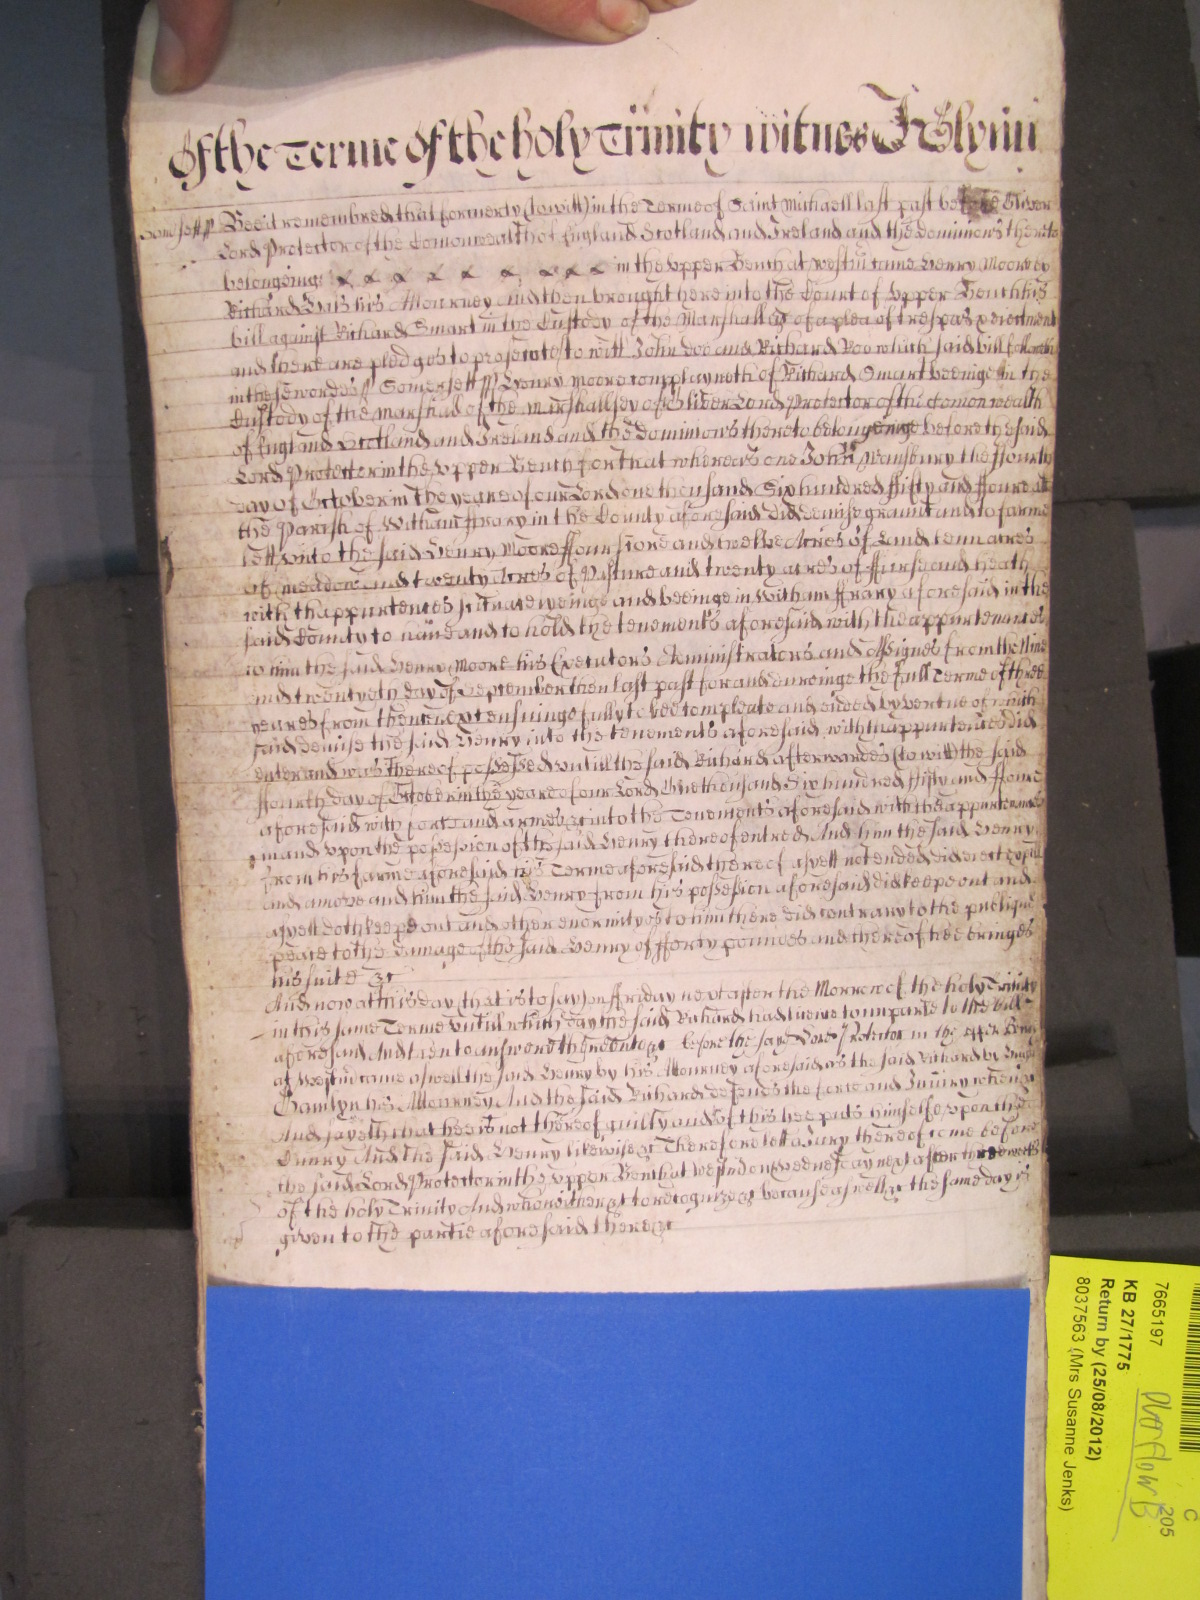 Of the Terme Of the holy Trinity witnes J Glynn
Somersett ss Bee it remembred that formerly (to witt) in the Terme of Saint Michaell last past before Oliver
Lord Protector of the Comonwealth of England Scotland and Ireland and the dominions thereto
belonginge in the upper Bench at Westm came Henry Moore by
Richard his Attourney and then brought here into the Court of Upper Bench his
bill against Richard Smart in the Custody of the Marshall &c of a plea of trespas & eiectment
and there are pledges to prosecute to witt John Doe and Richard Roo which said bill followeth
in these wordes ss Somersett ss Henry Moore complayneth of Richard Smart beeinge in the
Custody of the Marshall of the Marshallsey of Oliver Lord Protector of the Comonwealth
of England Scotland and Ireland and the Dominions thereto belonginge before the said
Lord Protector in the Upper Bench for that whereas one John the ffourth
day of October in the yeare of our Lord one thousand Six hundred ffifty and ffoure att
the Parish of Witham ffrary in the County aforesaid did demise graunt and to farme
lett unto the said Henry Moore ffour score and twelve Acres of Land tenn acres
of meadow and twenty Acres of Pasture and twenty acres of ffurse and heath
with thappurtences scituate lyeinge and beeinge in Witham ffrary aforesaid in the
said County to have and to hold the tenements aforesaid with the appurtenances
to him the said Henry Moore his Executors Administrators and Assignes from the Nine
and twentyeth day of September then last past for and dureinge the full Terme of three
yeares from thence next ensuinge fully to bee compleate and ended by vertue of which
said demise the said Henry into the tenements aforesaid with thappurtences did
enter and was thereof possessed untill the said Richard afterwardes (to witt) the said
ffourth day of October in the yeare of our Lord One thousand Six hundred ffifty and ffoure
aforesaid with force and armes &c into the Tenements aforesaid with the appurtenances
in and upon the possession of the said Henry thereof entred And him the said Henry
from his farme aforesaid his Terme aforesaid thereof as yett not ended did eiect expell
and amove and him the said Henry from his possession aforesaid did keepe out and
as yett doth keepe out and other enormityes to him there did contrary to the publique
peace to the damage of the said Henry of fforty poundes and thereof hee bringes
his suite &c
And now att this day (that is to say) on ffriday next after the Morrow of the holy Trinity
in this same Terme untill which day the said Richard had leave to imparle to the bill
aforesaid And then to answere thereunto &c before the sayd Lord Protector in the upper Bench
at Westm came aswell the said Henry by his Attourney aforesaid as the said Richard by
his Attourney And the said Richard defends the force and Iniury when &c
And sayeth that hee is not thereof guilty and of this hee puts himselfe upon the
Cuntry And the said Henry likewise &c Therefore lett a Jury thereof come before
the said Lord Protector in the Upper Bench at Westm on Wednesday next after three weekes
of the holy Trinity And who neither &c to recognize &c because aswell &c the same day is
given to the partie aforesaid there &c
7665197
KB 27/1775
Return by (25/08/2012)
8037563 (Mrs Susanne Jenks)
C
205
Overflow B